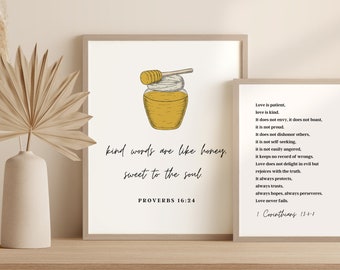 kind words are like honey,
sweet to the soul
PROVERBS 16:24
Love is patient,
love is kind.
it does not envy, it does not boast,
it is not proud.
it does not dishonor others,
it is not self-seeking,
it is not easily angered,
it keeps no record of wrongs.
Love does not delight in evil but
rejoices with the truth.
it always protects,
always trusts,
always hopes, always perseveres.
Love never fails.
1 Corinthians 13:4-8